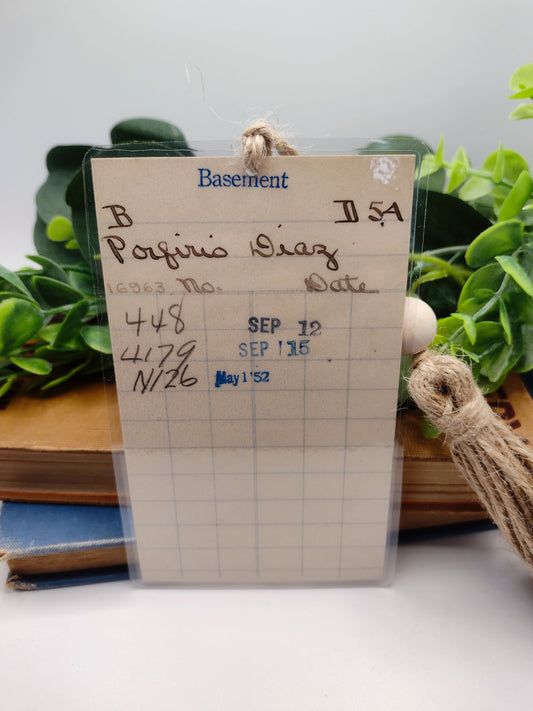 Basement
B D 5A
Porfirio Diaz
16963 No. Date
448 SEP 12
4179 SEP 1 '15
N126 May 1 '52